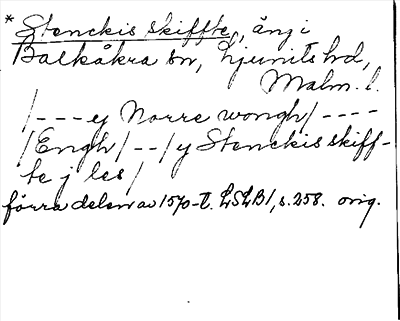 * Stenckis skiffte, äng i
Balkåkra sn, Ljunits hd,
Malm. l.
/---ey Norre wongh/----
/Engh/--/y Stenckis skiff-
te j les/
förra delen av 1570-t. LSLB1, s. 258. orig.